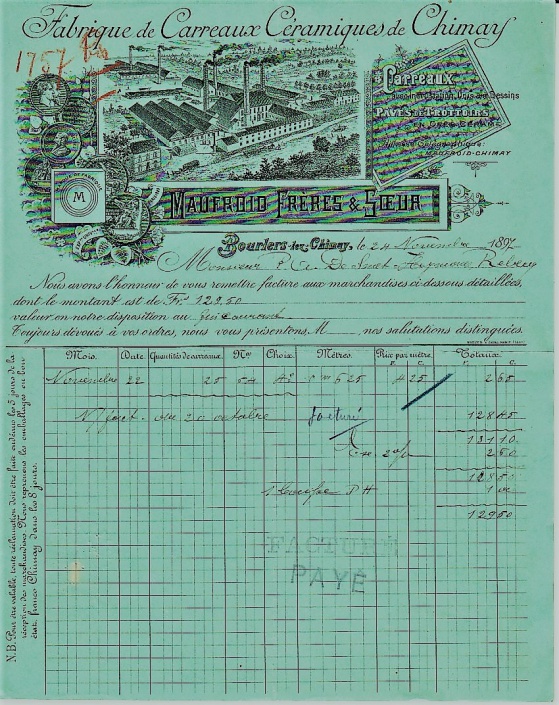 Fabrique de Carreaux Céramiques de Chimay
1757
Carreaux
PAVÉS DE TROTTOIRS
MAUFROID-CHIMAY
M
MAUFROID FRÈRES & SŒUR
Bourlers-lez-Chimay, le 24 Novembre 189
Monsieur De Smet
Nous avons l'honneur de vous remettre facture aux marchandises ci-dessous détaillées,
dont le montant est de Frs 129,50
valeur en notre disposition au fin courant
Toujours dévoués à vos ordres, nous vous présentons, M nos salutations distinguées.
Mois. Date Quantités de carreaux. Nos Choix. Mètres. Prix par mètre. Totaux.
Novembre 22 25 0m625 4 25 2 65
N/ fact. du 20 octobre facturé 128 45
131 10
Esc. 2% 2 60
128 50
P H 1
129 50
FACTURE
PAYÉ
N.B. Pour être valable, toute réclamation doit être faite endéans les 3 jours de la
réception des marchandises. Nous reprenons les emballages en bon
état, franco Chimay dans les 8 jours.